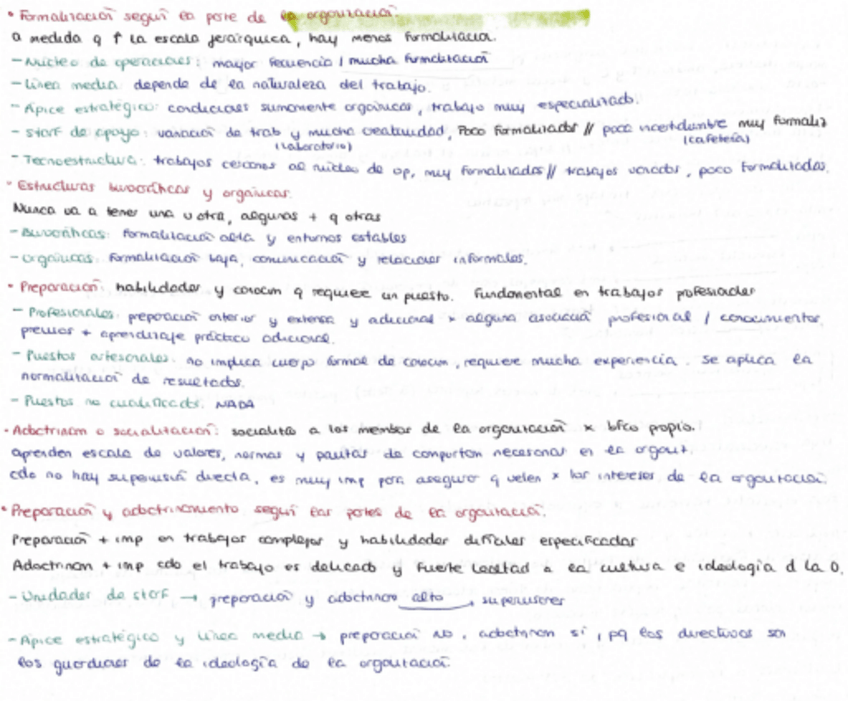 • Formalización según la parte de la organización
a medida q ↑ la escala jerárquica, hay menos formalización.
- Núcleo de operaciones: mayor frecuencia / mucha formalización
- Línea media: depende de la naturaleza del trabajo.
- Ápice estratégico: condiciones sumamente orgánicas, trabajo muy especializado.
- Staff de apoyo: variación de trab y mucha creatividad, Poco formalizados // poca incertidumbre muy formaliz
(laboratorio) (cafetería)
- Tecnoestructura: trabajos cercanos al núcleo de op, muy formalizados // trabajos variados, poco formalizados.
• Estructuras burocráticas y orgánicas.
Nunca va a tener una u otra, algunas + q otras
- Burocráticas: formalización alta y entornos estables
- Orgánicas: formalización baja, comunicación y relaciones informales.
• Preparación: habilidades y conocim q requiere un puesto. Fundamental en trabajos profesionales
- Profesionales: preparación anterior y extensa y adicional x alguna asociación profesional / conocimientos
previos + aprendizaje práctico adicional.
- Puestos artesanales: no implica cuerpo formal de conocim, requiere mucha experiencia. Se aplica la
normalización de resultados.
- Puestos no cualificados: NADA
• Adoctrinam o socialización: socializa a los miembros de la organización x bfco propio.
aprenden escala de valores, normas y pautas de comportam necesarias en la organiz.
cdo no hay supervisión directa, es muy imp para asegurar q velen x los intereses de la organización.
• Preparación y adoctrinamiento según las partes de la organización.
Preparación + imp en trabajos complejos y habilidades difíciles especificadas
Adoctrinam + imp cdo el trabajo es delicado y fuerte lealtad a la cultura e ideología d la O.
- Unidades de staff → preparación y adoctrinam alto → supervisores
- Ápice estratégico y línea media → preparación no, adoctrinam sí, pq los directivos son
los guardianes de la ideología de la organización